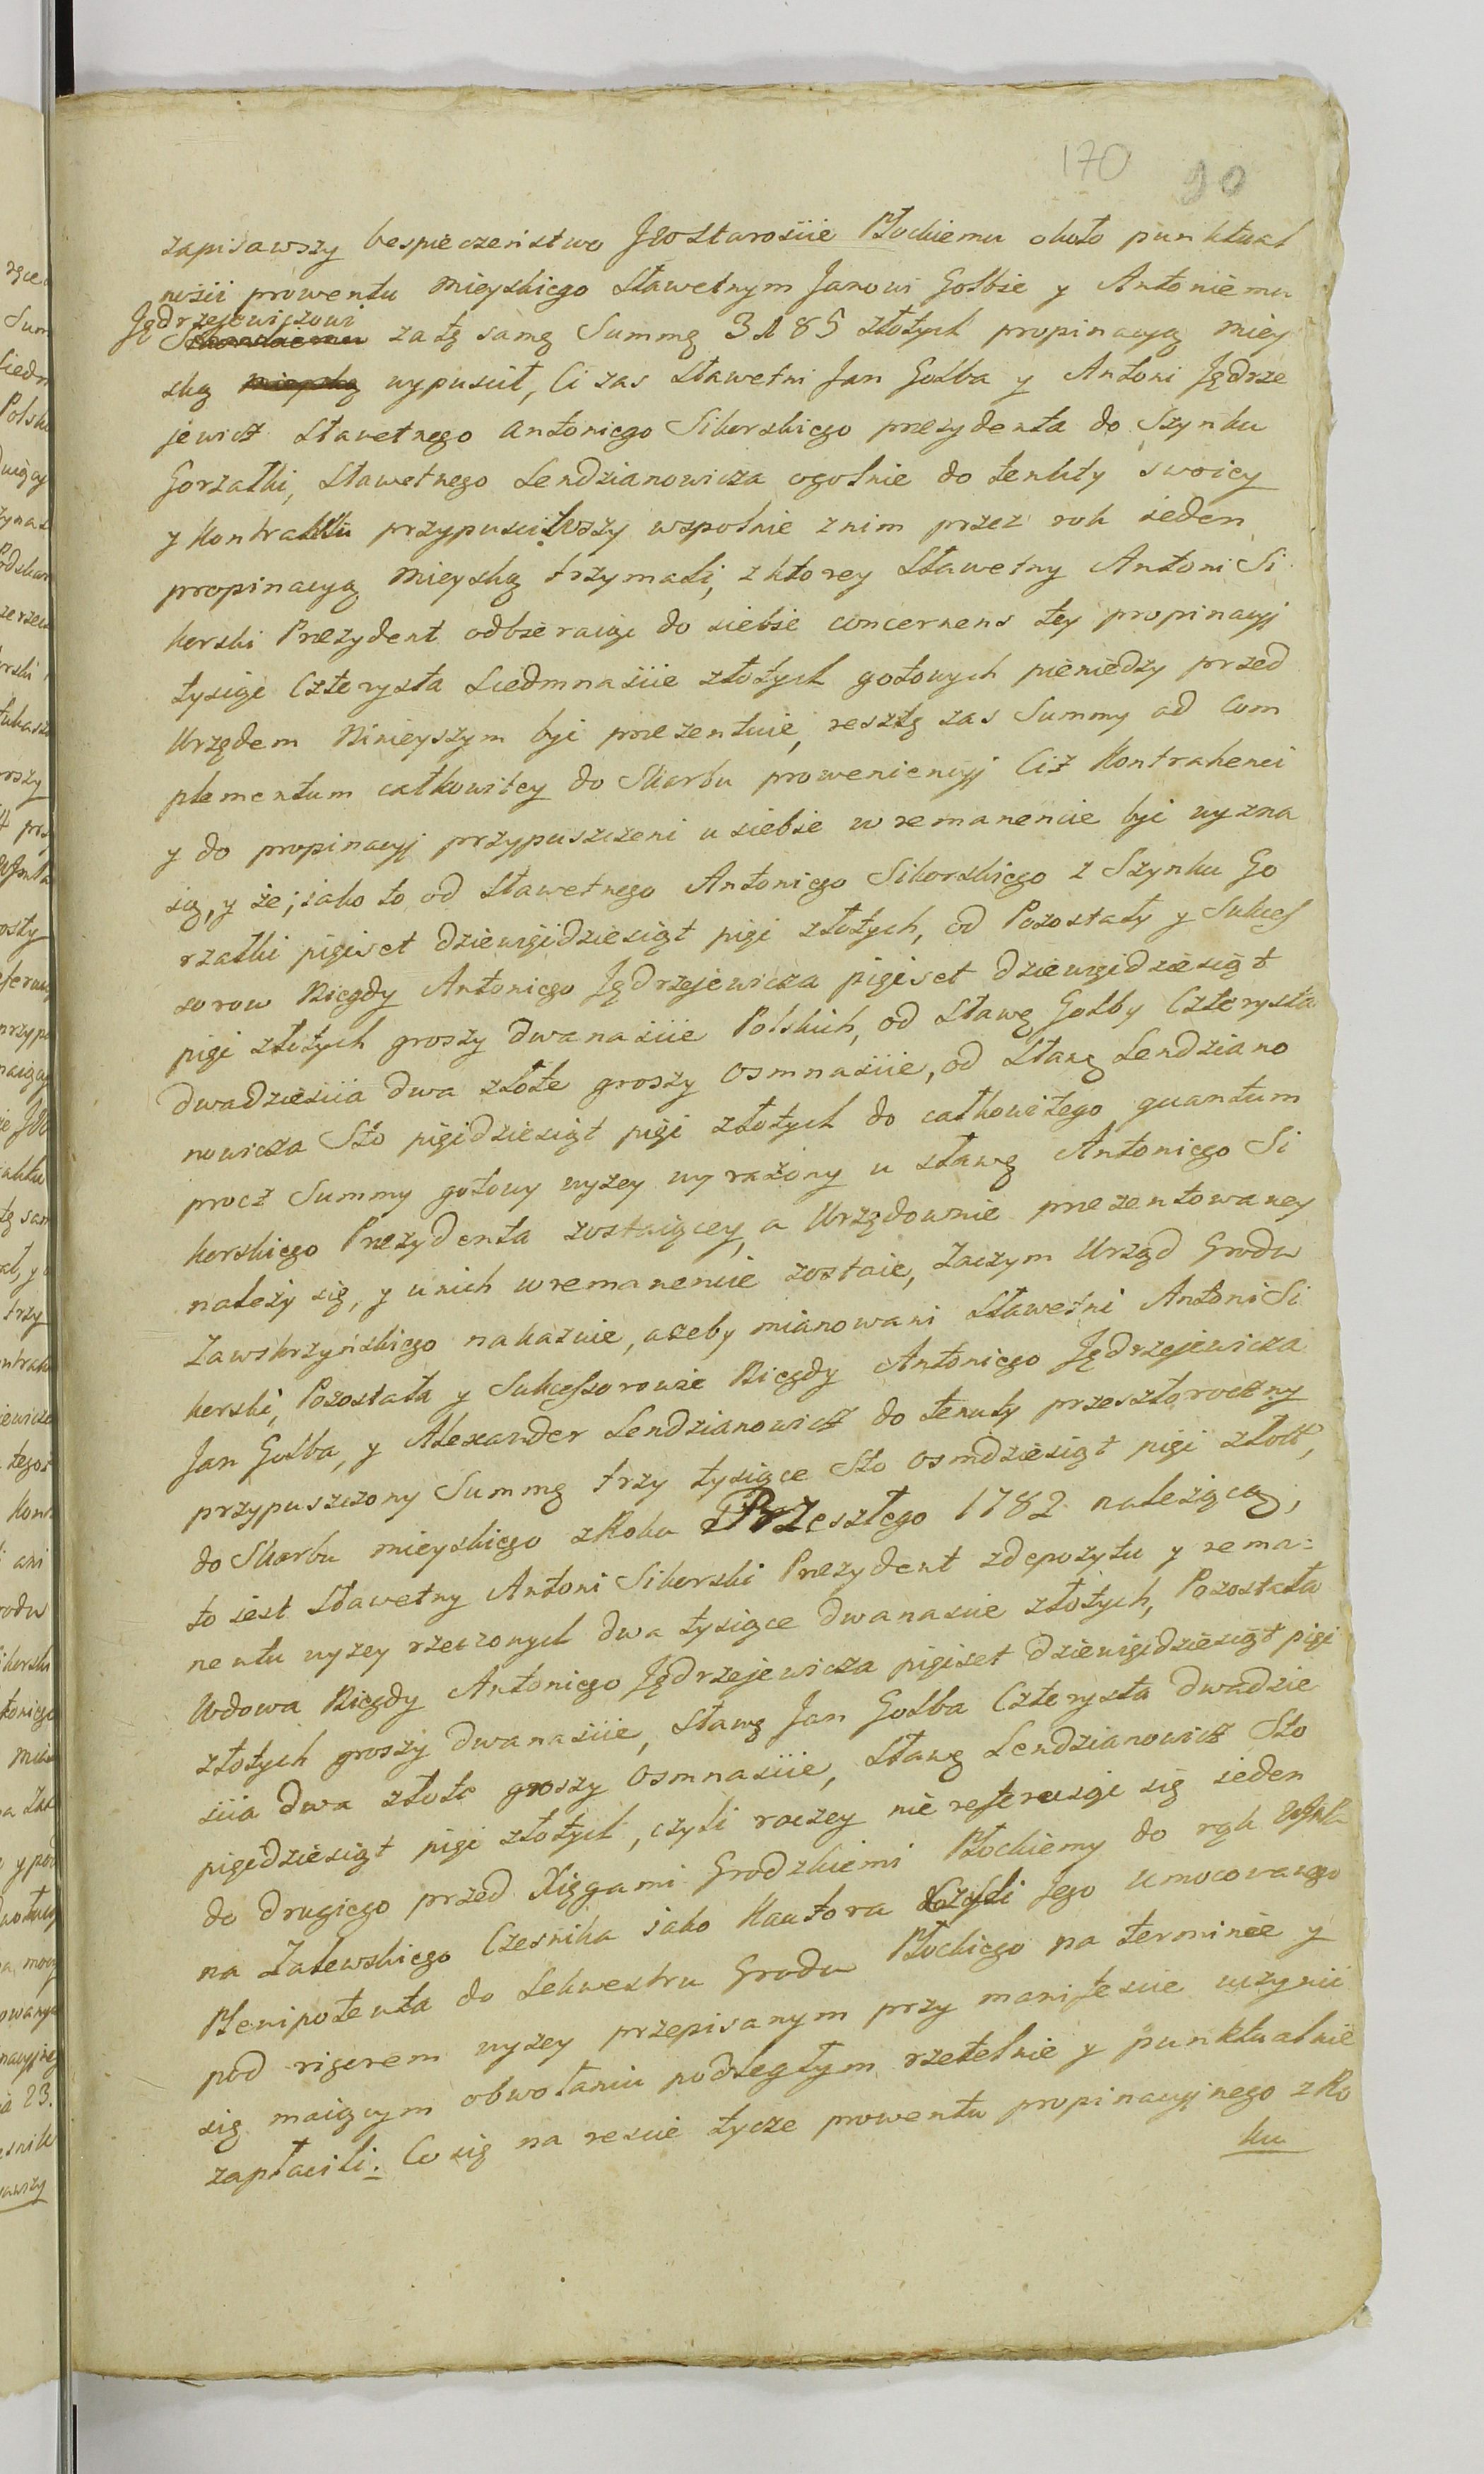 170 90
zapisawszy bespieczeństwo JWo Starosiie Płockiemu około punktual
nosii prowentu mieyskiego Sławetnym Janowi Gołbie y Antoniemu
Jędrzejewiczowi za tę samę Summę 3185 złotych propinacyą miey
ską wypuscił, Ci zas Sławetni Jan Gołba y Antoni Jędrze
jewicz Sławetnego Antoniego Sikorskiego prezydenta do Szynku
Gorzałki, Sławetnego Lendzianowicza ogolnie do tenuty swoiey
y Kontraktu przypusciwszy wspolnie z nim przez rok ieden
propinacyą mieyską trzymali, z ktorey Sławetny Antoni Si
korski Prezydent odbieraiąc do siebie concernens tey propinacyj
tysiąc Czterysta Siedmnasiie złotych gotowych pieniedzy przed
Urzędem Ninieyszym byc prezentuie, resztę zas Summy ad Com
plementum całkowitey do Skarbu proweniencyj Ciż Kontrahenci
y do propinacyj przypuszczeni u siebie w remanencie byc wyzna
ią, y że; iako to od Sławetnego Antoniego Sikorskiego z Szynku Go
rzałki pięiset dziewięidziesiąt pięi złotych, od Pozostały y Sukces
sorow Niegdy Antoniego Jędrzejewicza pięiset dziewięidziesiąt
pięi złotych groszy dwanasiie Polskich, od Sławę Gołby Czterysta
dwadziesiia dwa złote groszy osmnasiie, od Sławę Lendziano
nowicza Sto pięidziesiąt pięi złotych do całkowitego quantum
procz Summy gotowy wyzey wyrażony u sławę Antoniego Si
korskiego Prezydenta zostaiącey, a Urzędownie prezentowaney
należy się, y u nich w remanencie zostaie, Zaczym Urząd Grodu
Zawskrzyńskiego nakazuie, azeby mianowani Sławetni Antoni Si
korski, Pozostała y Sukcessorowie Niegdy Antoniego Jędrzejewicza
Jan Gołba, y Alexander Lendzianowicz do tenuty przeszłoroczny
przypuszczony Summę trzy tysiące Sto osmdziesiąt pięi złott,
do Skarbu mieyskiego z Roku Przeszłego 1782 należącą,
to iest Sławetny Antoni Sikorski Prezydent z depozytu y rema=
nentu wyzey rzeczonych dwa tysiące dwanascie złotych, Pozostała
Wdowa Niegdy Antoniego Jędrzejewicza pięiset dziewięidziesiąt pięi
złotych groszy dwanasiie, Sławę Jan Gołba Czterysta dwadzie
siia dwa złote groszy Osmnasiie, Sławę Lendzianowicz Sto
pięidziesiąt pięi złotych, czyli raczey nie referuiąc się ieden
do drugiego przed Xięgami Grodzkiemi Płockiemy do rąk
na Zalewskiego Czesnika iako Kautora czyli Jego Umocowanego
Plenipotenta do Sekwestru Grodu Płockiego na terminie y
pod rigorem wyzey przepisanym przy manifescie uczynii
się maiącym obwołaniu podległym rzetelnie y punktualnie
zapłacili. Co się na rescie tycze prowentu propinacyjnego z Ro
ku